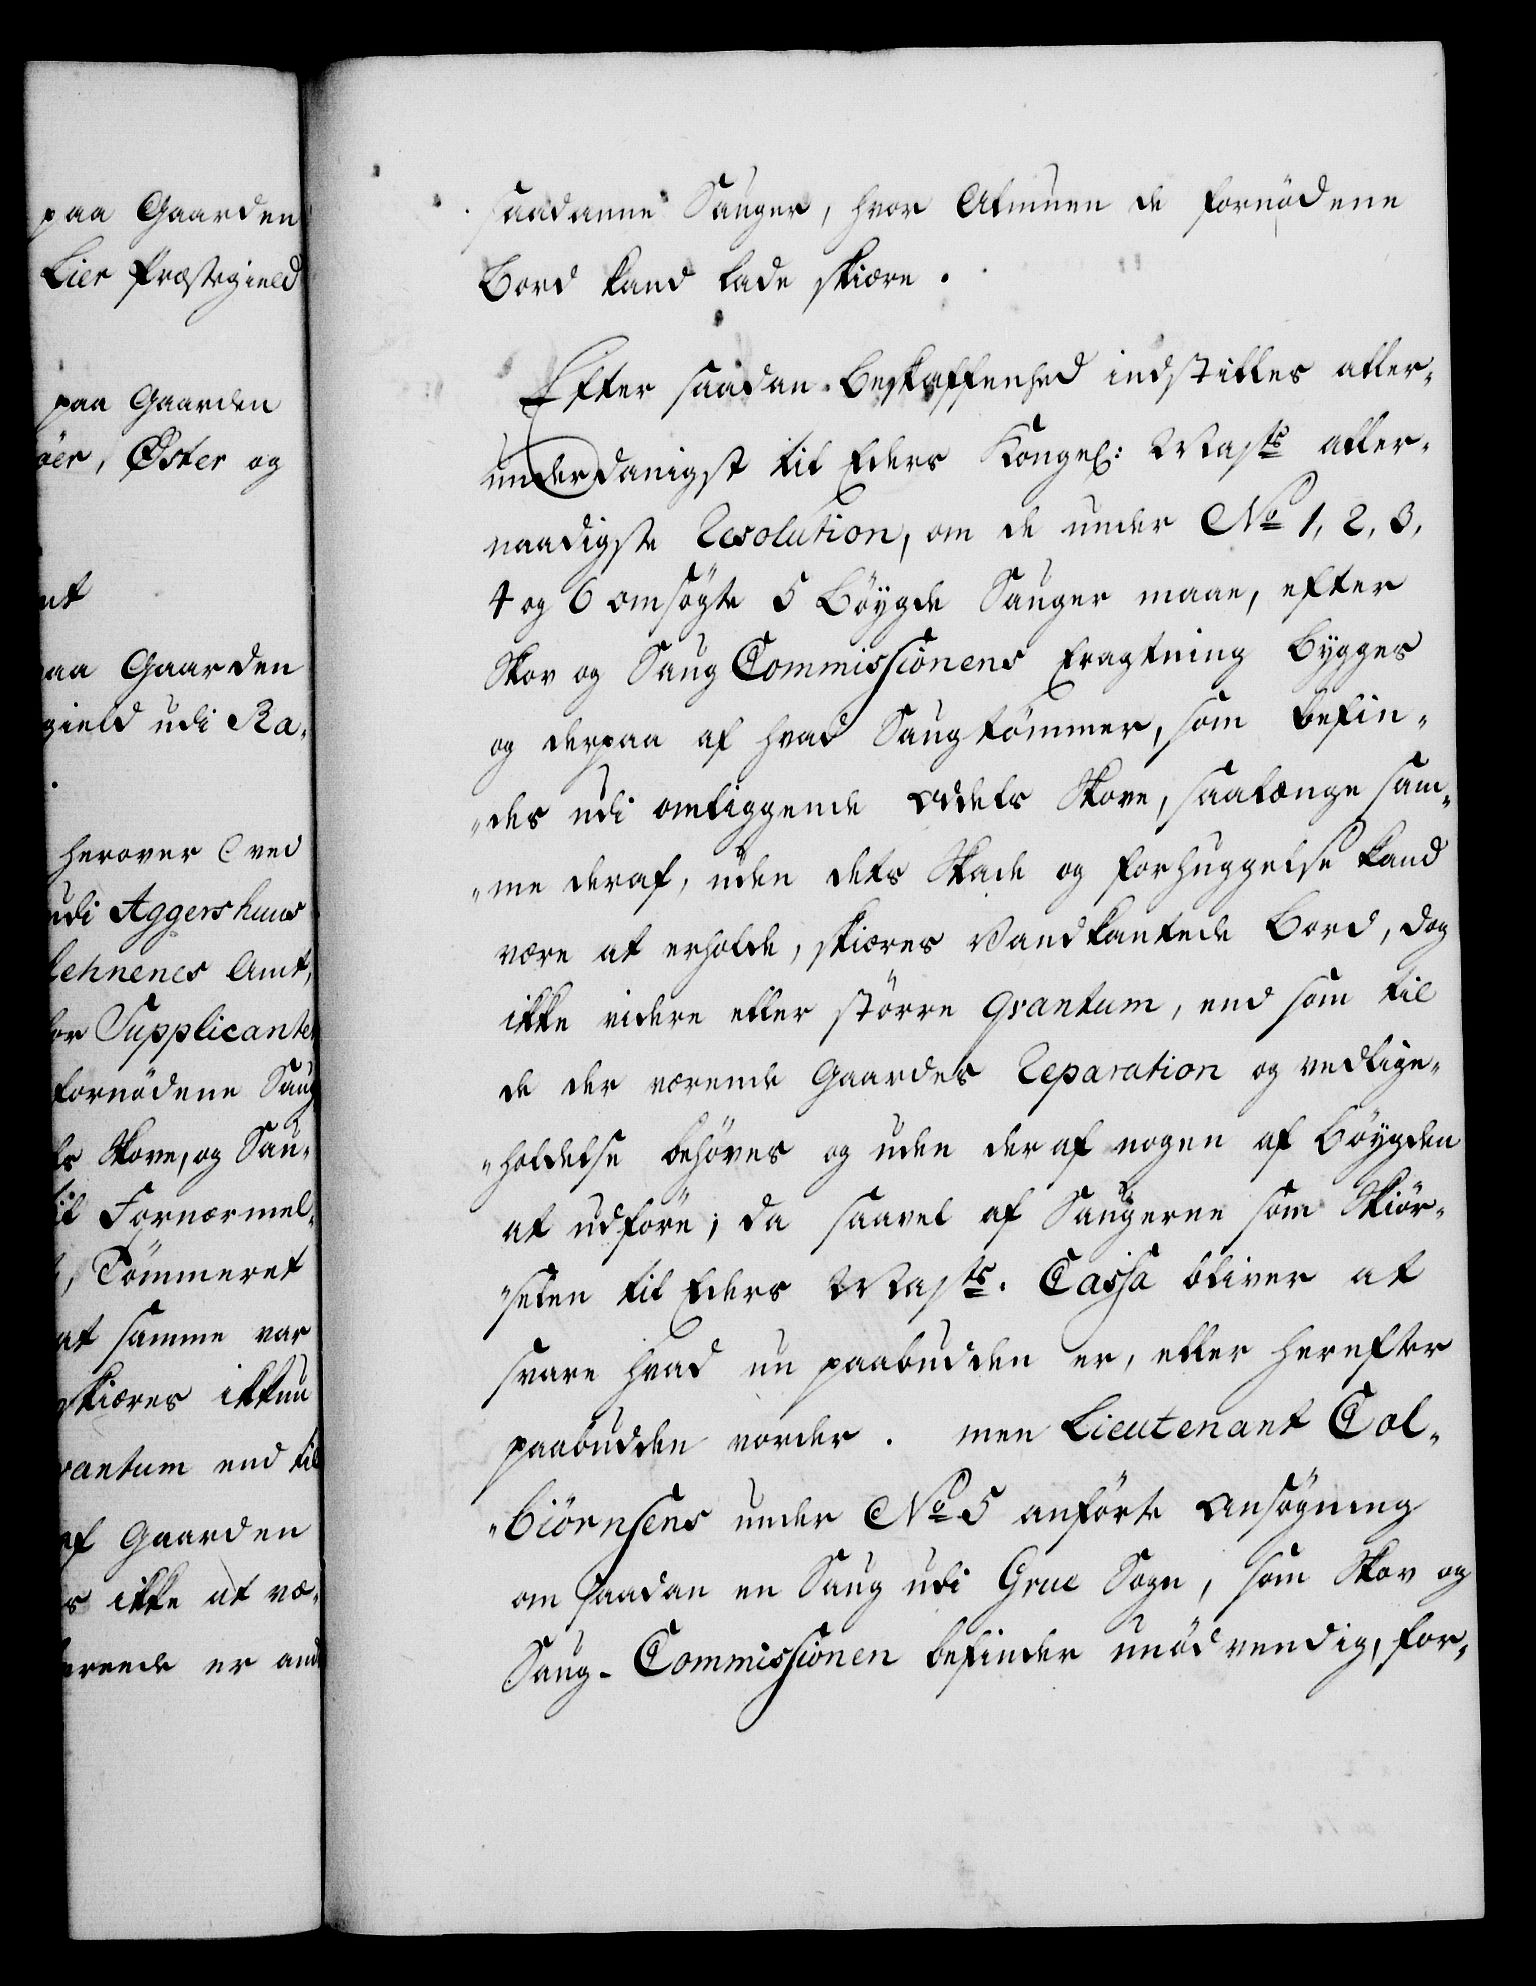 paa Gaarden
Lier Præstegield
paa Gaarden
öer, Öster og
nt
paa Gaarden
gield udi Ra-
herover Ved
udi Aggershuus
Lehnenes Amt,
or Supplicanter
fornödene Saug
s Skove, og Sau-
il Fornærmel-
, Tömmeret
at samme var
skiæres ikkun
vantum end til
af Gaarden
s ikke at væ-
erede er and
saadanne Sauger, hvor Almuen de fornödene
Bord kand lade skiære.
Efter saadan Beskaffenhed indstilles aller-
underdanigst til Eders Kongel: Mayts aller-
naadigste Resolution, om de under No 1, 2, 3,
4 og 6 omsögte 5 Böygde Sauger maae, efter
Skov og Saug Commissionens Eragtning bygges
og derpaa af hvad Saugtömmer, som befin-
"des udi omliggende Oddels Skove, saalænge sam-
"me deraf, uden dets Skade og forhuggelse kand
være at erholde, skiæres Vandkantede Bord, dog
ikke videre eller större Qvantum, end som til
de der værende Gaardes Reparation og vedlige-
"holdelse behöves og uden deraf nogen af Böygden
at udföre; da saavel af Saugerne som Skiör-
"selen til Eders Mayts. Cassa bliver at
svare hvad nu paabudden er, eller herefter
paabudden vorder. men Lieutenant Col-
"biörnsens under No 5 anförte Ansögning
om saadan en Saug udi Grue Sogn, som Skov og
Saug-Commissionen befinder unödvendig, for-